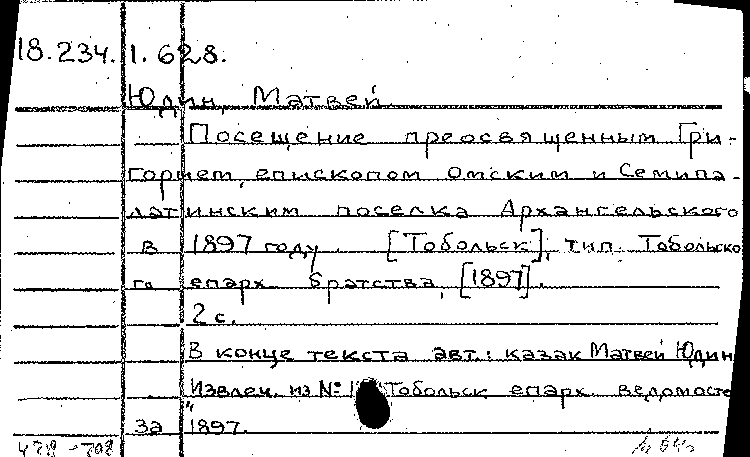 18.234.1.628.
Юдин, Матвей
Посещение преосвященным Гри-
горием, епископом Омским и Семипа-
латинским поселка Архангельского
в 1897 году. [Тобольск], тип. Тобольско
га епарх. братства, [1897].
2 с.
В конце текста авт.: казак Матвей Юдин
Извлеч. из № Тобольск. епарх. ведомосте
за 1897.